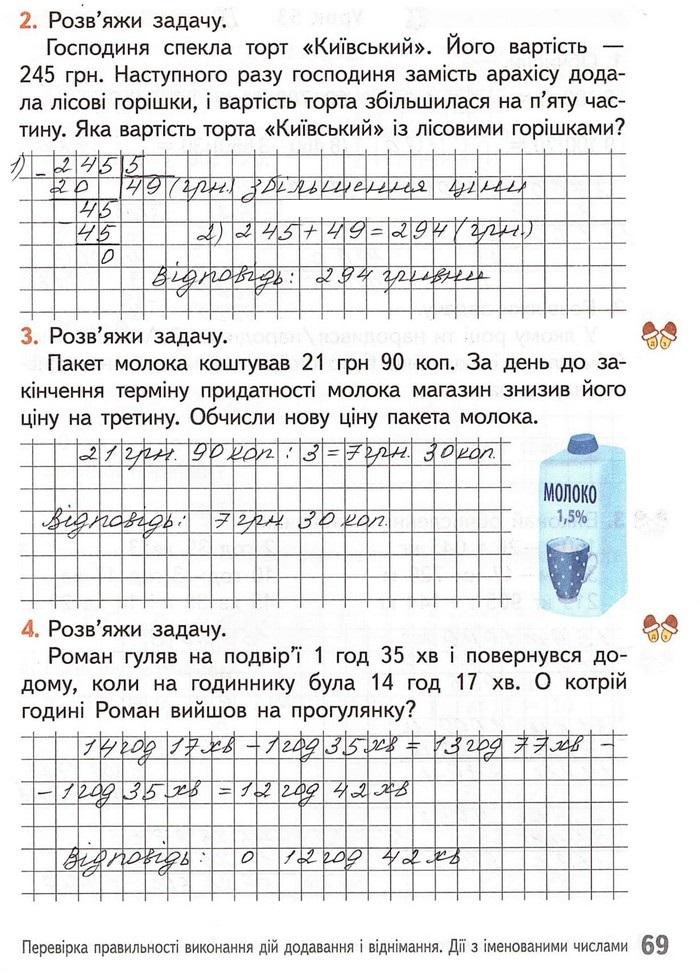 2. Розв'яжи задачу.
Господиня спекла торт «Київський». Його вартість —
245 грн. Наступного разу господиня замість арахісу дода-
ла лісові горішки, і вартість торта збільшилася на п'яту час-
тину. Яка вартість торта «Київський» із лісовими горішками?
1) - 245 | 5
20 | 49 (грн.) збільшення ціни
- 45
45 2) 245 + 49 = 294 (грн.)
0
Відповідь: 294 гривни
3. Розв'яжи задачу.
Пакет молока коштував 21 грн 90 коп. За день до за-
кінчення терміну придатності молока магазин знизив його
ціну на третину. Обчисли нову ціну пакета молока.
21 грн. 90 коп : 3 = 7 грн. 30 коп.
МОЛОКО
1,5%
Відповідь: 7 грн 30 коп.
4. Розв'яжи задачу.
Роман гуляв на подвір'ї 1 год 35 хв і повернувся до-
дому, коли на годиннику була 14 год 17 хв. О котрій
годині Роман вийшов на прогулянку?
14 год 17 хв - 1 год 35 хв = 13 год 77 хв -
- 1 год 35 хв = 12 год 42 хв
Відповідь: о 12 год 42 хв
Перевірка правильності виконання дій додавання і віднімання. Дії з іменованими числами 69